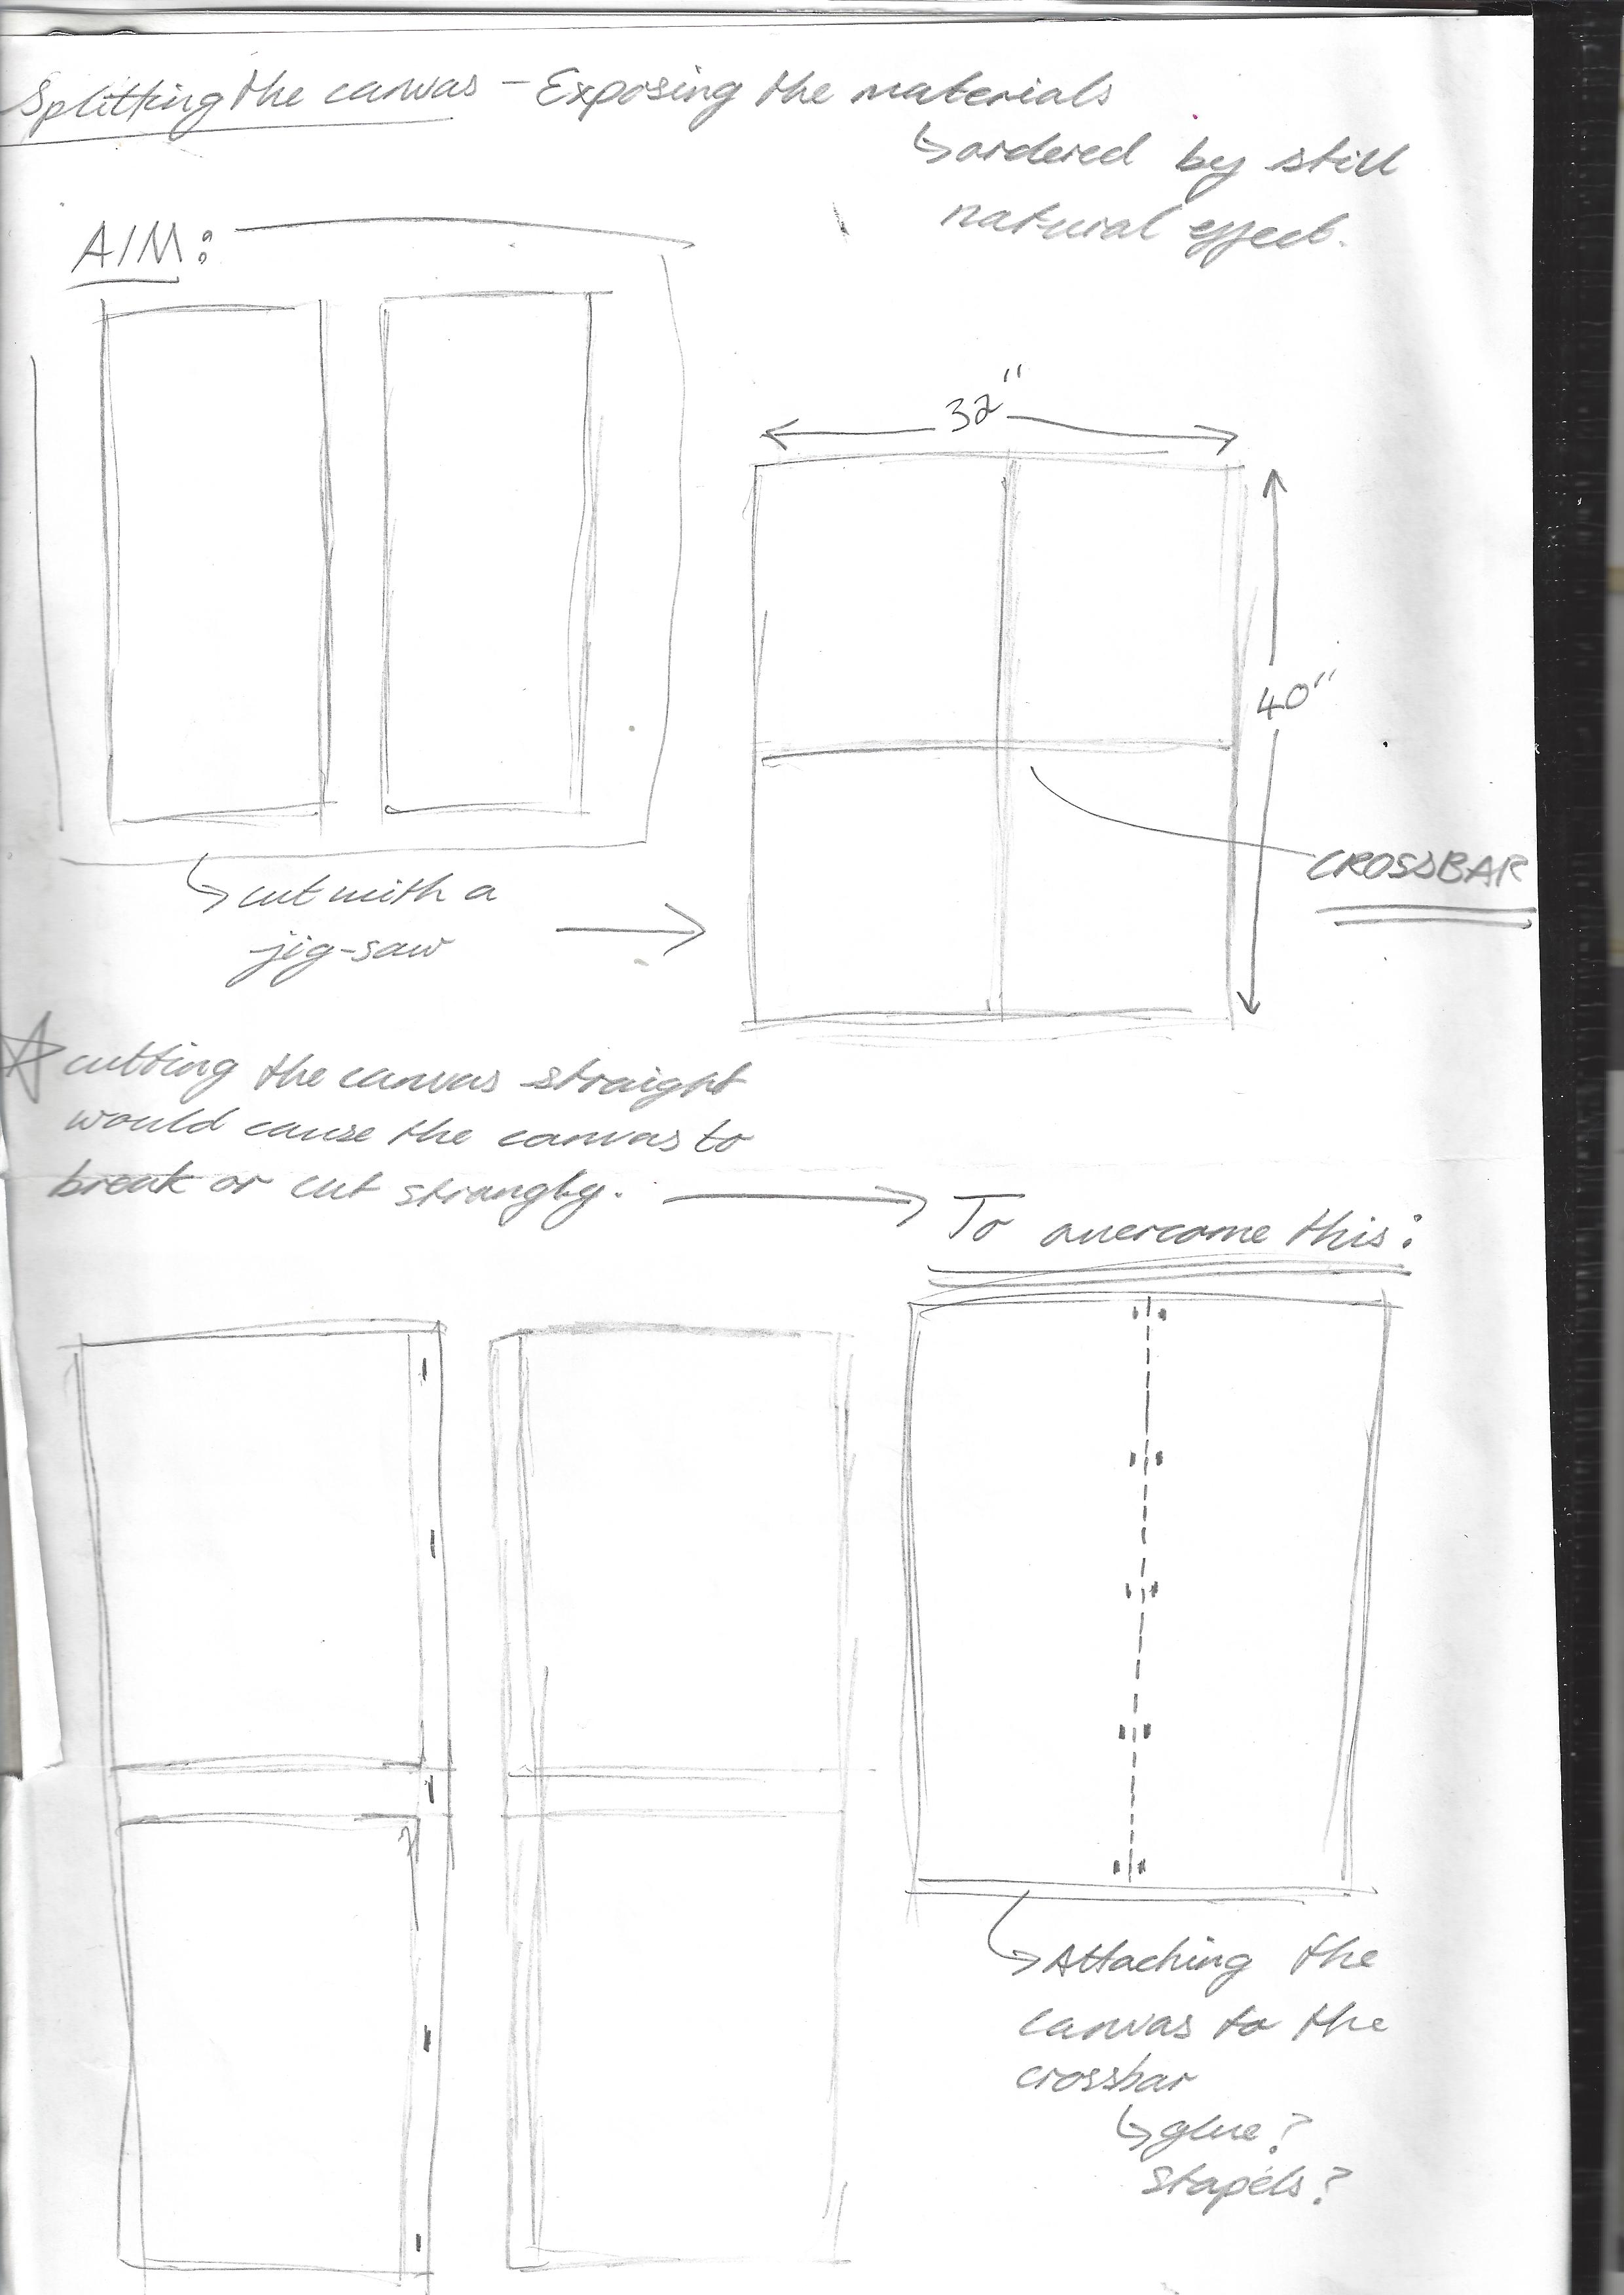 Splitting the canvas - Exposing the materials
↳ ordered by still
natural effect.
AIM:
32"
40"
CROSSBAR
↳ cut with a
jig-saw
☆ cutting the canvas straight
would cause the canvas to
break or cut strangly.
To overcome this:
↳ Attaching the
canvas to the
crossbar
↳ glue?
stapels?